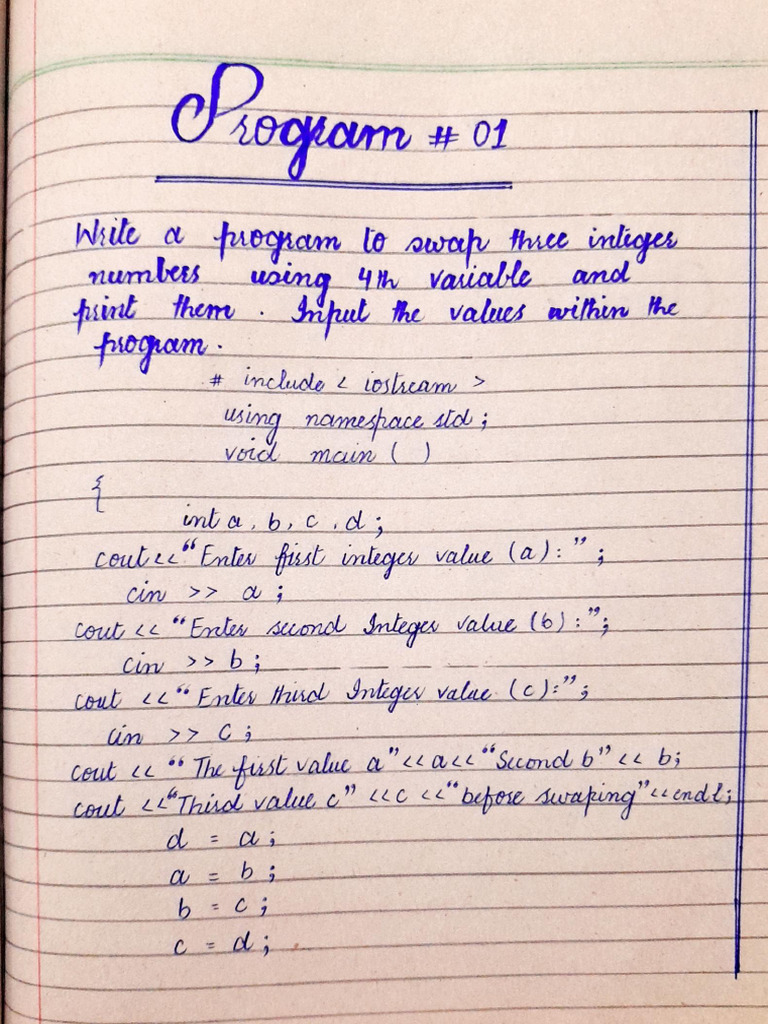 Program # 01
Write a program to swap three integer
numbers using 4th variable and
print them. Input the values within the
program.
# include < iostream >
using namespace std ;
void main ( )
{
int a, b, c, d ;
cout<<"Enter first integer value (a):" ;
cin >> a ;
cout << "Enter second Integer value (b) :";
cin >> b ;
cout <<"Enter third Integer value (c):";
cin >> c ;
cout << "The first value a"<<a<<"Second b"<< b;
cout <<"Third value c" <<c <<"before swaping"<<endl;
d = a ;
a = b ;
b = c ;
c = d ;